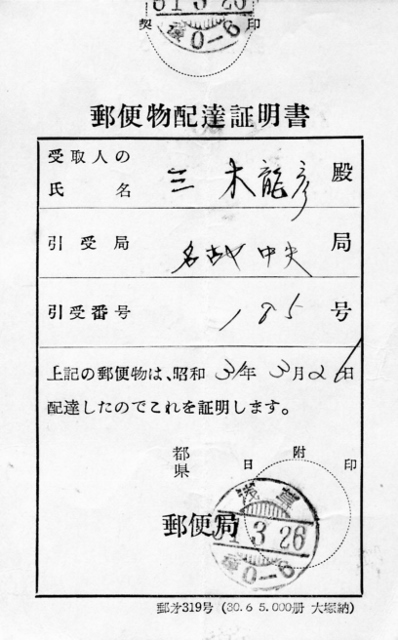 31 3 26
契 印
0-6
郵便物配達証明書
受取人の
氏名 三木龍彦 殿
引受局 名古や中央 局
引受番号 185 号
上記の郵便物は、昭和31年3月26日
配達したのでこれを証明します。
都
県
日附印
郵便局
31 3 26
0-6
郵才319号 (30.6 5.000册 大塚納)